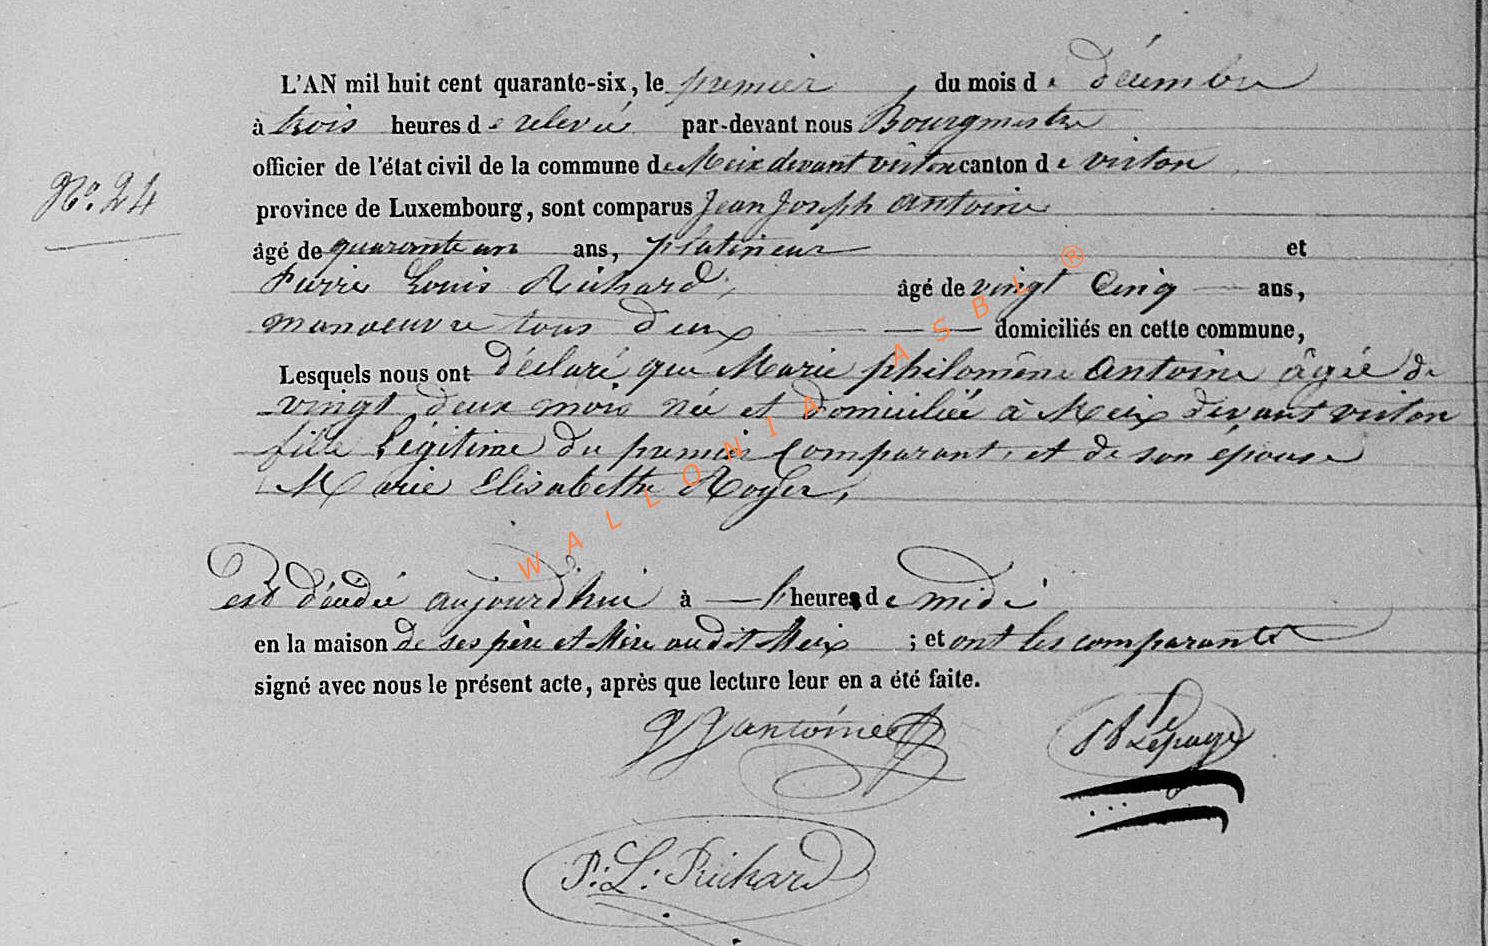 L'AN mil huit cent quarante-six, le premier du mois de décembre
à trois heures de relevée par-devant nous Bourgmestre
officier de l'état civil de la commune de Meix devant virton canton de virton
N° 24
province de Luxembourg, sont comparus Jean Joseph antoine
âgé de quarante un ans, platineur et
Pierre Louis Richard, âgé de vingt Cinq ans,
manoeuvre tous deux domiciliés en cette commune,
Lesquels nous ont déclaré que Marie philomène antoine âgée de
vingt deux mois née et domiciliée à Meix devant virton
fille légitime du premier Comparant, et de son épouse
Marie Elisabethe Royer,
est décédée aujourd'hui à l'heure de midi
en la maison de ses père et Mère audit Meix ; et ont les comparants
signé avec nous le présent acte, après que lecture leur en a été faite.
JJ antoine
Lepage
P: L: Richard
WALLONIA ASBL ®